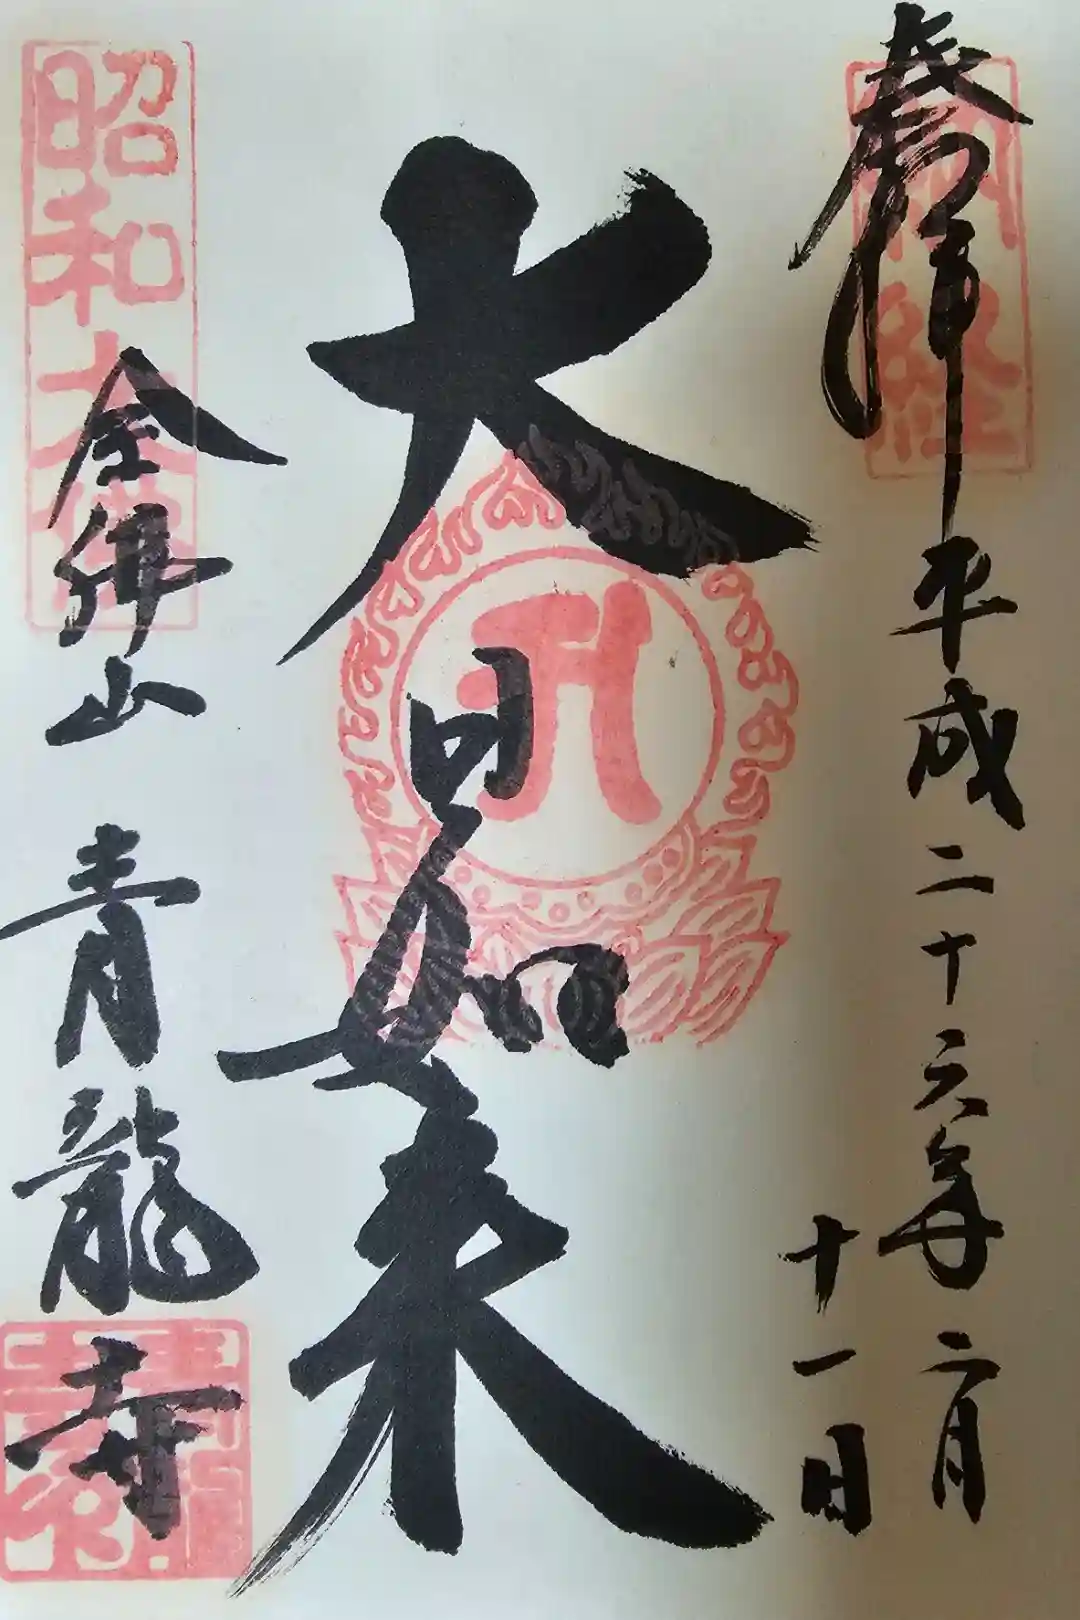 奉拝
平成二十六年二月
十一日
納経
大日如来
昭和大佛
全佛山
青龍寺